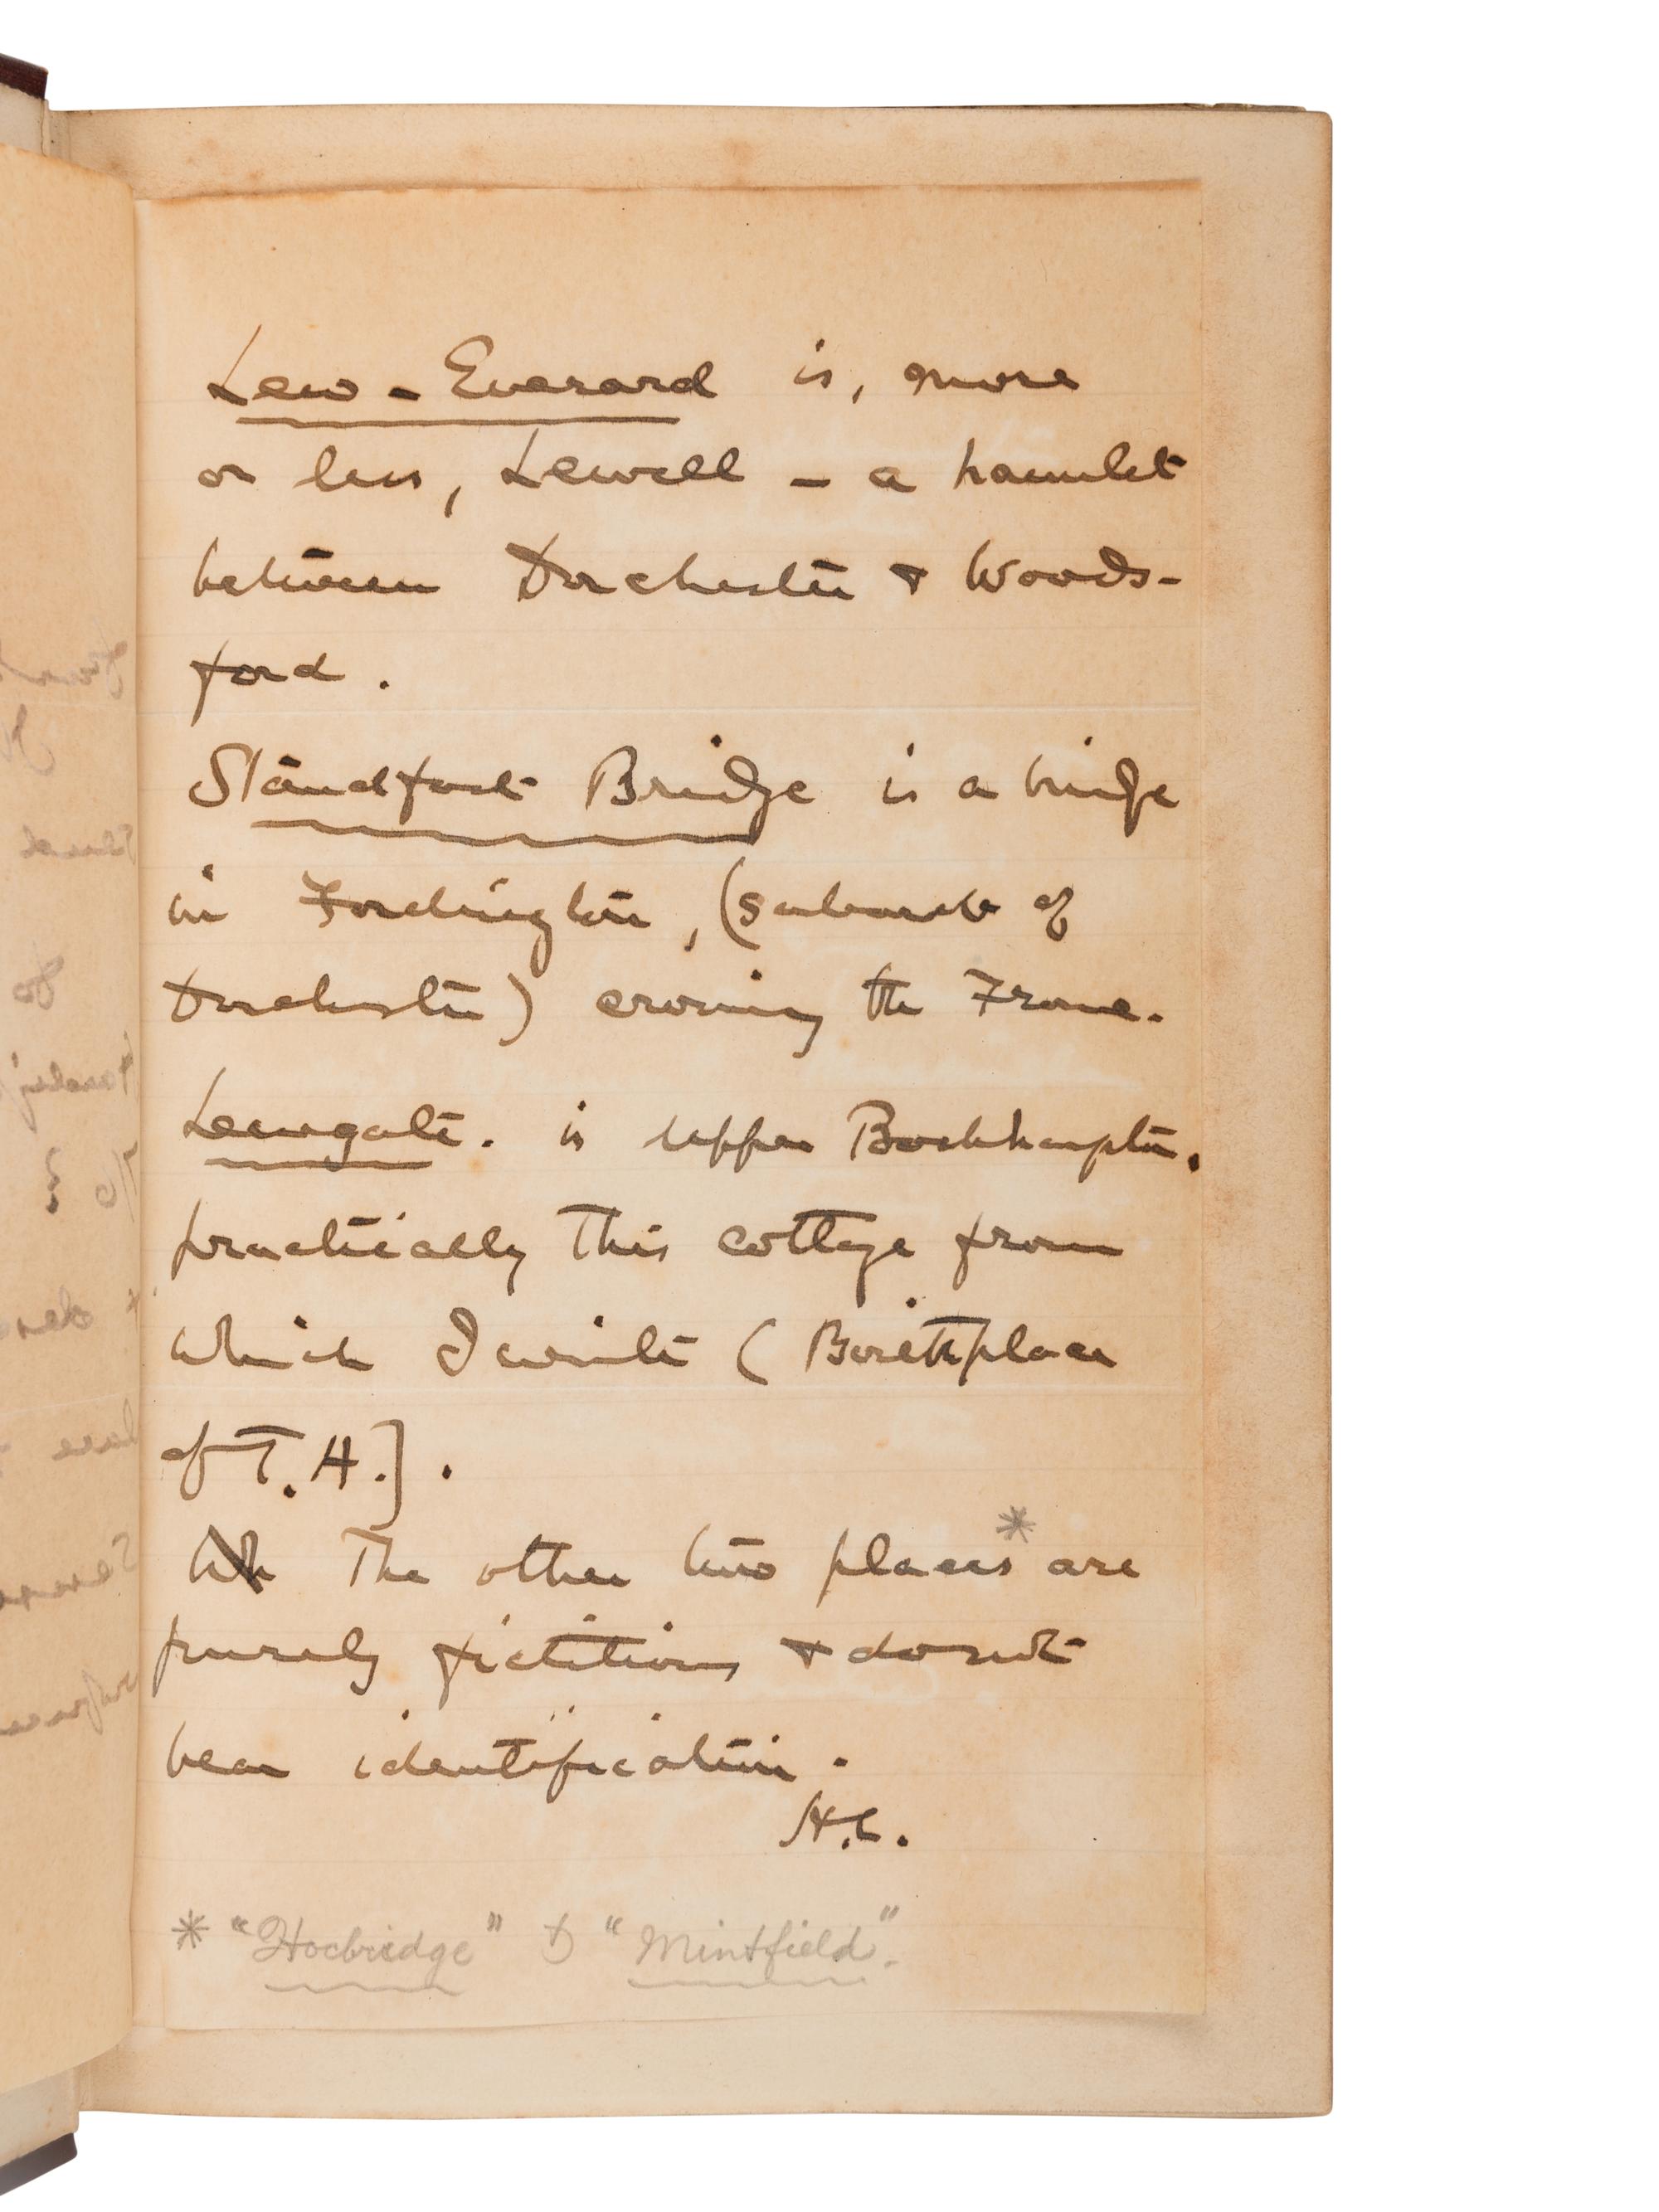 Lew-Everard is, more
or less, Lewell – a hamlet
between Dorchester & Woods-
ford.
Standfast Bridge is a bridge
in Fordington, (suburb of
Dorchester) crossing the Frome.
Lewgate. is Upper Bockhampton.
practically this cottage from
which I write (Birthplace
of T.H.].
The other two places* are
purely fictitious & do not
bear identification.
H.C.
* "Hocbridge" & "Mintfield".